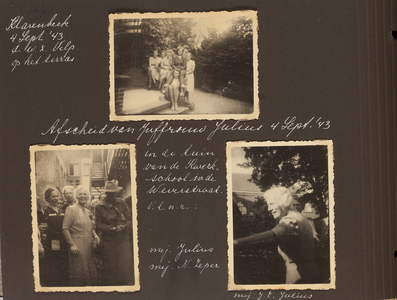 Klarenbeek
4 Sept '43
d. W. v. Velp.
op het terras
Afscheid van Juffrouw Julius 4 Sept. '43
in de tuin
van de Kweek
school o/d
Weverstraat.
v.l.n.r.:
mej. Julius
mej. N. Ieper
mej. J. E. Julius